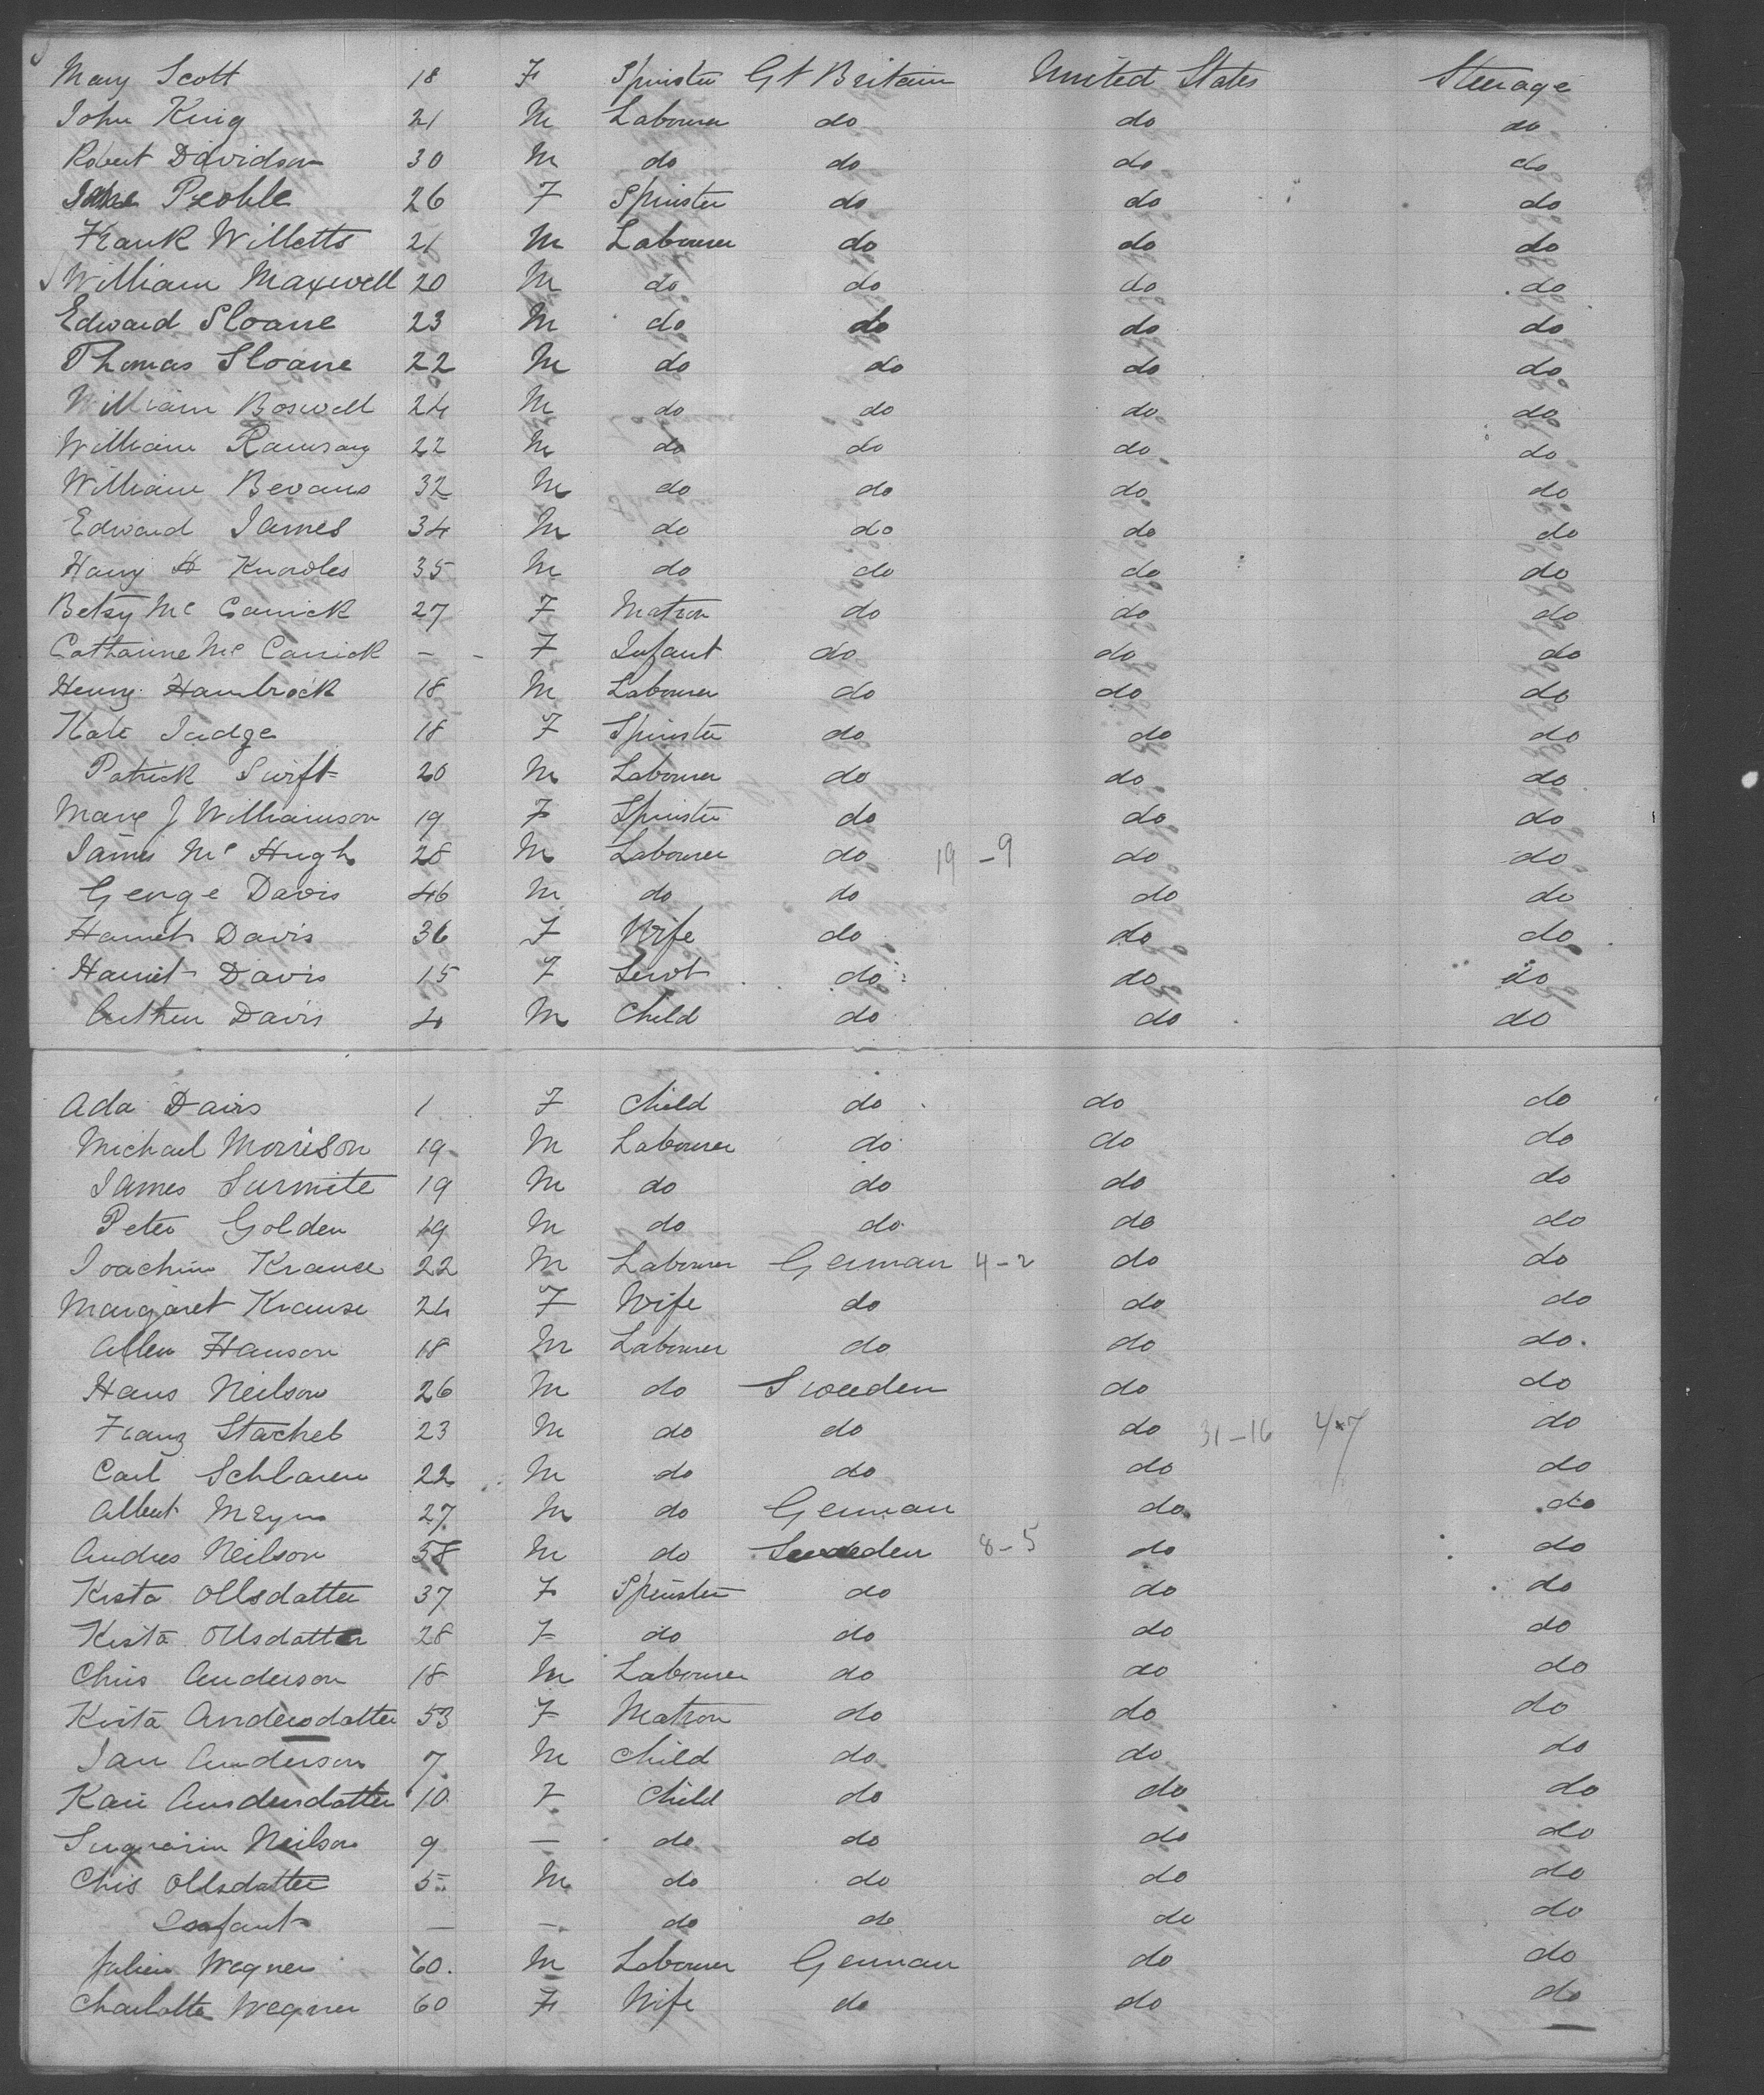 Mary Scott 18 F Spinster Gt Britain United States Steerage
John King 21 M Labourer do do do
Robert Davidson 30 M do do do do
Jane Peohle 26 F Spinster do do do
Frank Willetts 21 M Labourer do do do
William Maxwell 20 M do do do do
Edward Sloane 23 M do do do do
Thomas Sloane 22 M do do do do
William Boswell 24 M do do do do
William Ramsay 22 M do do do do
William Bevans 32 M do do do do
Edward James 34 M do do do do
Harry H Knowles 35 M do do do do
Betsy Mc Carrick 27 F Matron do do do
Catharine Mc Carrick - - F Infant do do do
Henry Hambrock 18 M Labourer do do do
Kate Judge 18 F Spinster do do do
Patrick Swift 20 M Labourer do do do
Mary J Williamson 19 F Spinster do do do
James Mc Hugh 28 M Labourer do 19 - 9 do do
George Davis 46 M do do do do
Harriet Davis 36 F Wife do do do
Harriet Davis 15 F Servt do do do
Arthur Davis 4 M Child do do do
Ada Davis 1 F Child do do do
Michael Morrison 19 M Labourer do do do
James Surmite 19 M do do do do
Peter Golden 19 M do do do do
Joachim Krause 22 M Labourer German 4-2 do do
Margaret Krause 24 F Wife do do do
Allen Hanson 18 M Labourer do do do
Hans Neilson 26 M do Sweden do do
Franz Stachel 23 M do do do 31-16 4-7 do
Carl 22 M do do do do
Albert Meyn 27 M do German do do
Andres Neilson 58 M do Sweden 8-5 do do
Kista Ollsdatter 37 F Spinster do do do
Kista Ollsdatter 28 F do do do do
Chris Anderson 18 M Labourer do do do
Kista Andersdatter 53 F Matron do do do
Jan Anderson 7 M Child do do do
Kari Andersdatter 10 F Child do do do
Neilson 9 - do do do do
Chis Ollsdatter 5 M do do do do
Infant - - do do do do
Julien Wegner 60 M Labourer German do do
Charlotte Wegner 60 F Wife do do do